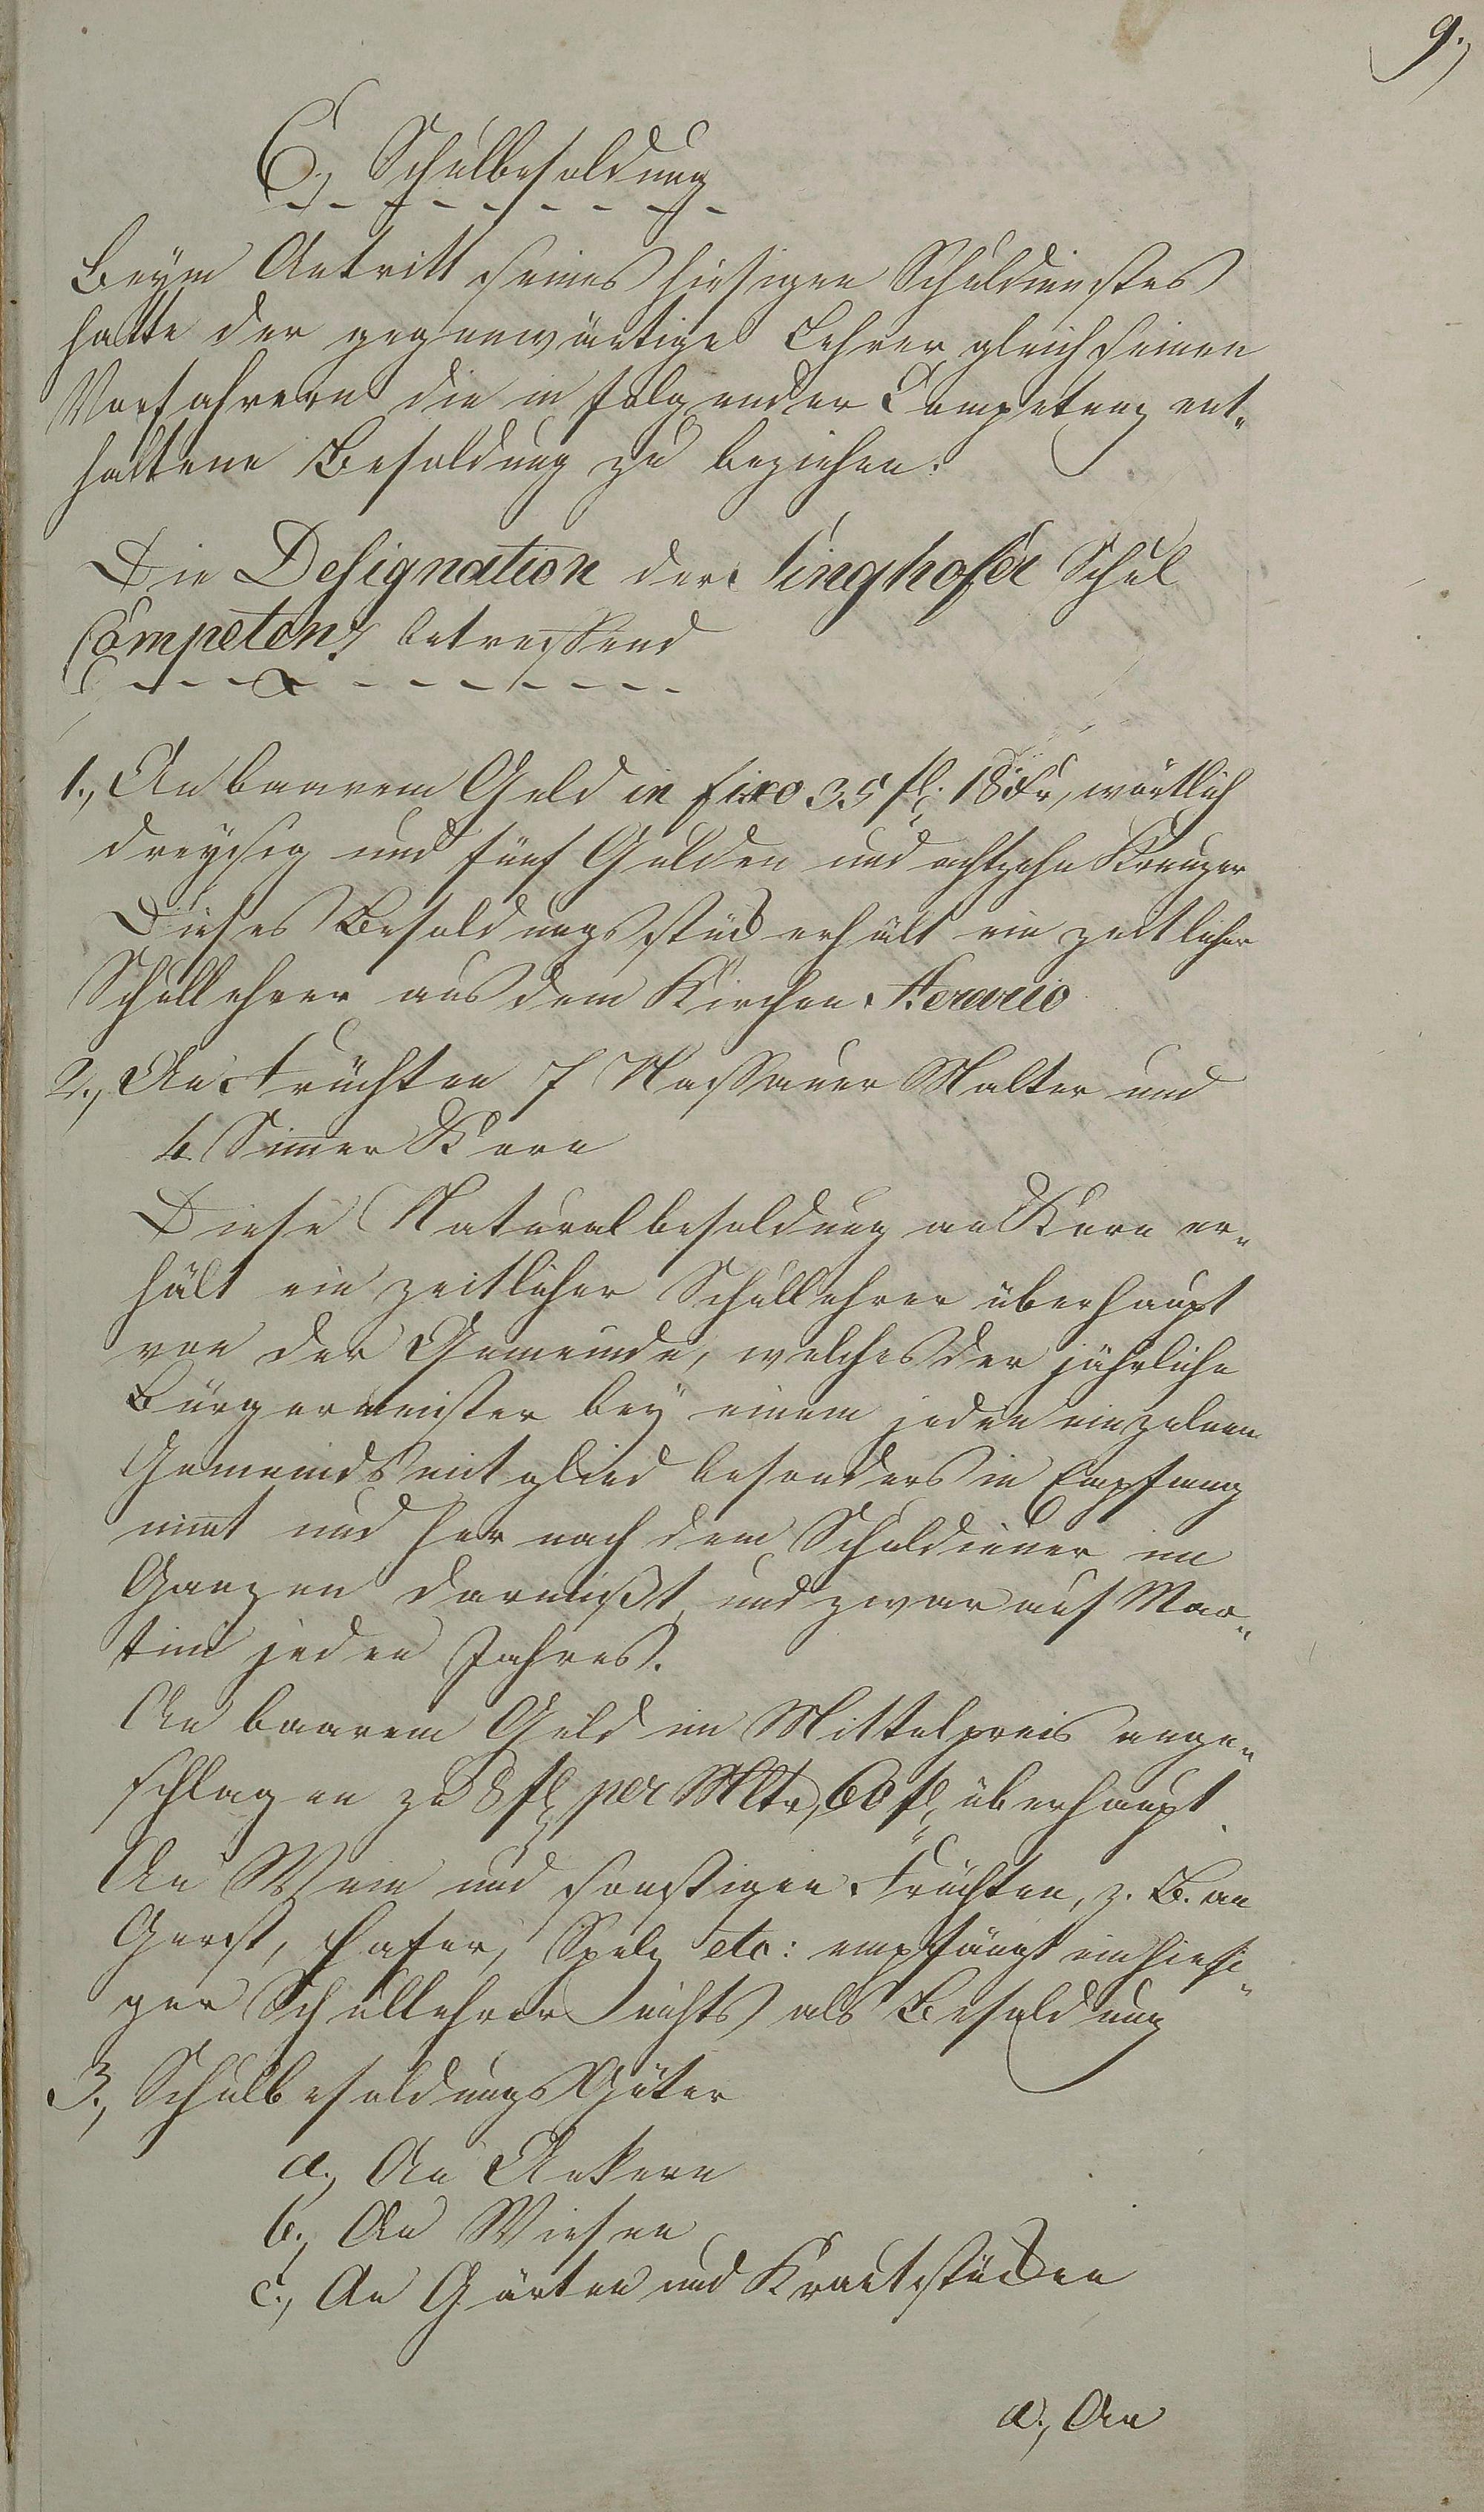 9.)
C., Schulbesoldung
Beym Antritt seines hiesigen Schuldienstes
hatte der gegenwärtige Lehrer gleich seinen
Vorfahrern die in folgender Competenz ent„
haltene Besoldung zu beziehen:
Die Designation der Singhofer Schul
Competenz betreffend
1., An baarem Geld in fixo 35 fl. 18 Xr, wörtlich
dreyßig und fünf Gulden und achtzehn Kreuzer
Dieses Besoldungsstück erhält ein zeitlicher
Schullehrer aus dem Kirchen Aerario
2., An Früchten 7 Nassauer Malter und
4 Sim̅er Korn
Diese Naturalbesoldung an Korn er„
hält ein zeitlicher Schullehrer überhaupt
von der Gemeinde, welches der jährliche
Bürgermeister bey einem jeden einzelnen
Gemeindsmitglied besonders in Empfang
nim̅t und her nach dem Schuldiener im
Ganzen darmißt, und zwar auf Mar„
tini jeden Jahres.
An baarem Geld im Mittelpreis ange„
schlagen zu 8 fl. per Mltr, 60 fl. überhaupt.
An Wein und sonstigen Früchten, z. B. an
Gerst, Hafer, Spelz etc: empfängt ein hiesi„
ger Schullehrer nichts als Besoldung
3., Schulbesoldungs Güter
a., An Aekern
b., An Wiesen
c., An Gärten und Krautstücken
a., An